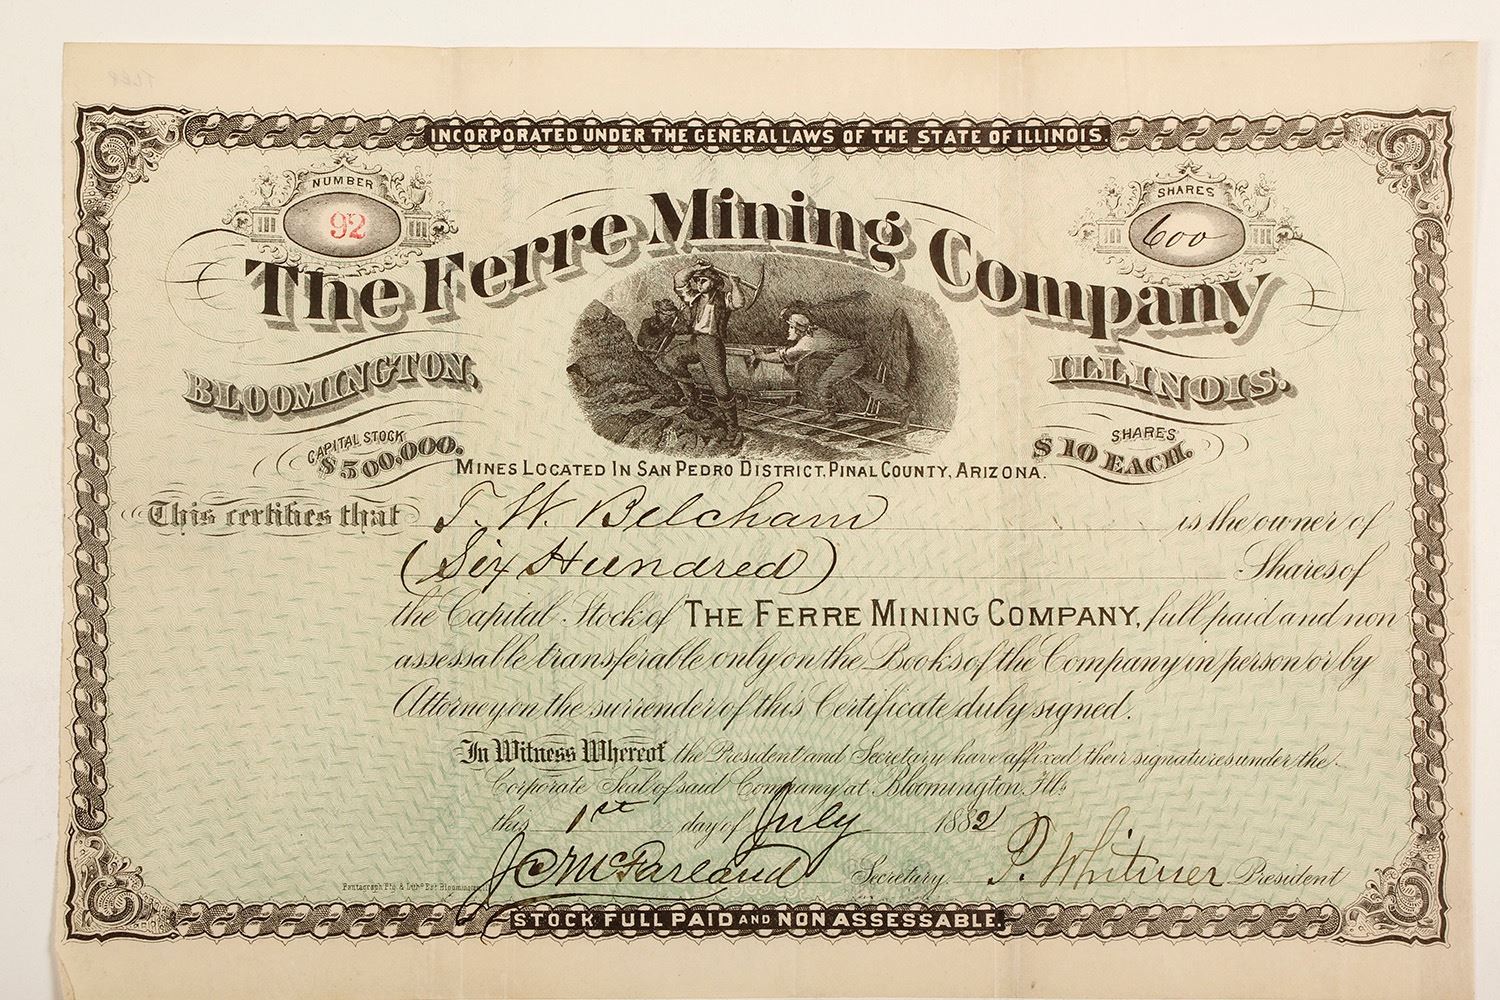 INCORPORATED UNDER THE GENERAL LAWS OF THE STATE OF ILLINOIS.
NUMBER
92
SHARES
600
The Ferre Mining Company
BLOOMINGTON, ILLINOIS.
CAPITAL STOCK
$500,000.
SHARES
$10 EACH.
MINES LOCATED IN SAN PEDRO DISTRICT, PINAL COUNTY, ARIZONA.
This certifies that T. W. Belcham is the owner of
(Six Hundred) Shares of
the Capital Stock of THE FERRE MINING COMPANY, full paid and non
assessable transferable only on the Books of the Company in person or by
Attorney on the surrender of this Certificate duly signed.
In Witness Whereof the President and Secretary have affixed their signatures under the
Corporate Seal of said Company at Bloomington, Ills
this 1st day of July 1882
J C McFarland Secretary. P. Whitmer President
Pantagraph Ptg. & Litho Est Bloomington
STOCK FULL PAID AND NON ASSESSABLE.